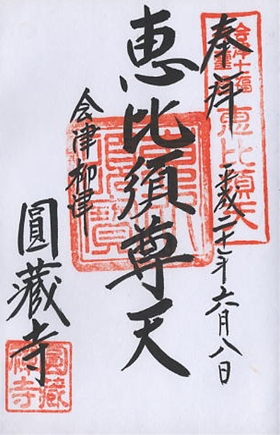 奉拝
平成二十一年六月八日
恵比須尊天
会津柳津
圓藏寺
恵比須天
圓藏禅寺